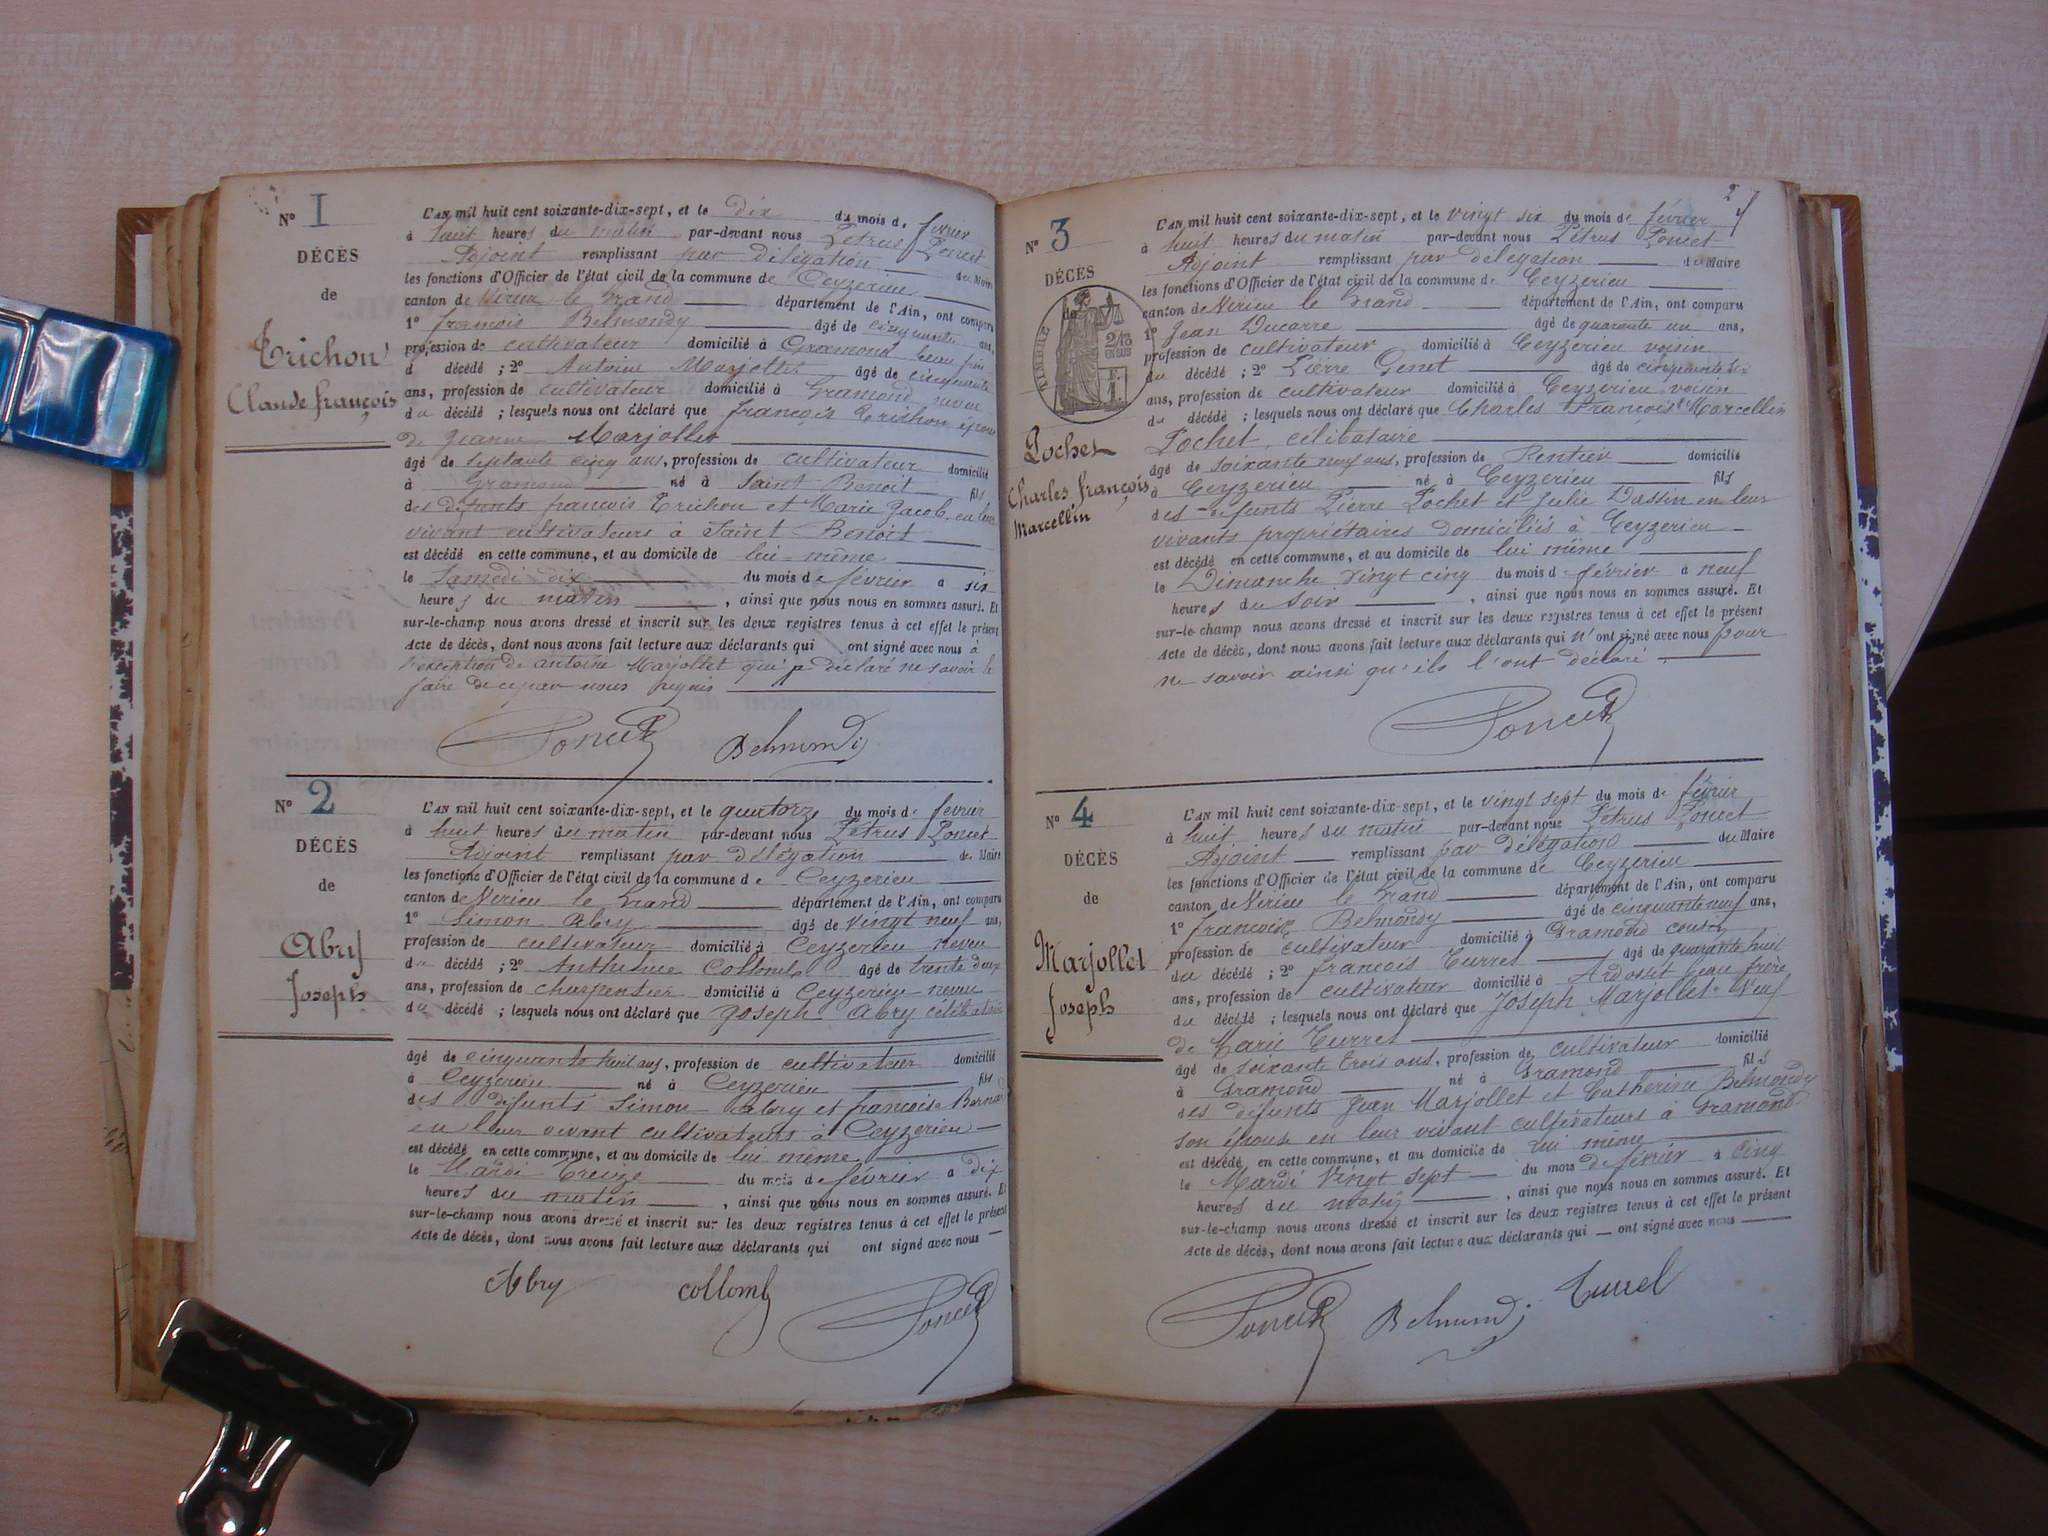 N° 1
DÉCÈS
de
Trichon
Claude françois
L'AN mil huit cent soixante-dix-sept, et le dix du mois de février
à huit heures du matin par-devant nous Pétrus Poncet
Adjoint remplissant par délégation du Maire
les fonctions d'Officier de l'état civil de la commune de Ceyzerieu
canton de Virieu le Grand département de l'Ain, ont comparu
1° françois Belmondy âgé de cinquante ans,
profession de cultivateur domicilié à Gramond beau frère
d décédé ; 2° Antoine Marjollet âgé de cinquante
ans, profession de cultivateur domicilié à Gramond neveu
du décédé ; lesquels nous ont déclaré que françois Trichon époux
de Jeanne Marjollet
âgé de septante cinq ans, profession de cultivateur domicilié
à Gramond né à Saint Benoit fils
des défunts francois Trichon et Marie Jacob en leur
vivant cultivateurs à Saint Benoit
est décédé en cette commune, et au domicile de lui-même
le Samedi dix du mois de février à six
heures du matin , ainsi que nous nous en sommes assuré. Et
sur-le-champ nous avons dressé et inscrit sur les deux registres tenus à cet effet le présent
Acte de décès, dont nous avons fait lecture aux déclarants qui ont signé avec nous à
l'exception de antoine Marjollet qui a déclaré ne savoir le
faire de ce par nous requis
Poncet Belmondi
N° 2
DÉCÈS
de
Abry
Joseph
L'AN mil huit cent soixante-dix-sept, et le quatorze du mois de février
à huit heures du matin par-devant nous Pétrus Poncet
Adjoint remplissant par délégation du Maire
les fonctions d'Officier de l'état civil de la commune de Ceyzerieu
canton de Virieu le Grand département de l'Ain, ont comparu
1° Simon Abry âgé de vingt neuf ans,
profession de cultivateur domicilié à Ceyzerieu neveu
du décédé ; 2° Anthelme Collomb âgé de trente deux
ans, profession de charpentier domicilié à Ceyzerieu neveu
du décédé ; lesquels nous ont déclaré que Joseph Abry célibataire
âgé de cinquante huit ans, profession de cultivateur domicilié
à Ceyzerieu né à Ceyzerieu fils
des défunts Simon abry et francoise Bernard
en leur vivant cultivateurs à Ceyzerieu
est décédé en cette commune, et au domicile de lui même
le Mardi treize du mois de février à dix
heures du matin , ainsi que nous nous en sommes assuré. Et
sur-le-champ nous avons dressé et inscrit sur les deux registres tenus à cet effet le présent
Acte de décès, dont nous avons fait lecture aux déclarants qui ont signé avec nous
Abry collomb Poncet
2
N° 3
DÉCÈS
de
TIMBRE
2/10
EN SUS
Pochet
Charles françois
Marcellin
L'AN mil huit cent soixante-dix-sept, et le vingt six du mois de février
à huit heures du matin par-devant nous Pétrus Poncet
Adjoint remplissant par délégation du Maire
les fonctions d'Officier de l'état civil de la commune de Ceyzerieu
canton de Virieu le Grand département de l'Ain, ont comparu
1° Jean Ducarre âgé de quarante un ans,
profession de cultivateur domicilié à Ceyzerieu voisin
du décédé ; 2° Pierre Genet âgé de cinquante six
ans, profession de cultivateur domicilié à Ceyzerieu voisin
du décédé ; lesquels nous ont déclaré que Charles François Marcellin
Pochet, célibataire
âgé de soixante neuf ans, profession de Rentier domicilié
à Ceyzerieu né à Ceyzerieu fils
des défunts Pierre Pochet et Julie Dassin en leur
vivants propriétaires domiciliés à Ceyzerieu
est décédé en cette commune, et au domicile de lui même
le Dimanche vingt cinq du mois de février à neuf
heures du soir , ainsi que nous nous en sommes assuré. Et
sur-le-champ nous avons dressé et inscrit sur les deux registres tenus à cet effet le présent
Acte de décès, dont nous avons fait lecture aux déclarants qui n'ont signé avec nous pour
ne savoir ainsi qu'ils l'ont déclaré.
Poncet
N° 4
DÉCÈS
de
Marjollet
Joseph
L'AN mil huit cent soixante-dix-sept, et le vingt sept du mois de février
à huit heures du matin par-devant nous Pétrus Poncet
Adjoint remplissant par délégation du Maire
les fonctions d'Officier de l'état civil de la commune de Ceyzerieu
canton de Virieu le Grand département de l'Ain, ont comparu
1° françois Belmondy âgé de cinquante neuf ans,
profession de cultivateur domicilié à Gramond cousin
du décédé ; 2° francois Turrel âgé de quarante huit
ans, profession de cultivateur domicilié à Ardosset beau frère
du décédé ; lesquels nous ont déclaré que Joseph Marjollet Veuf
de Marie Turrel
âgé de soixante trois ans, profession de cultivateur domicilié
à Gramond né à Gramond fils
des défunts Jean Marjollet et Catherine Belmondy
son épouse en leur vivant cultivateurs à Gramond
est décédé en cette commune, et au domicile de lui même
le Mardi Vingt sept du mois de février à cinq
heures du matin , ainsi que nous nous en sommes assuré. Et
sur-le-champ nous avons dressé et inscrit sur les deux registres tenus à cet effet le présent
Acte de décès, dont nous avons fait lecture aux déclarants qui ont signé avec nous
Poncet Belmondi Turrel